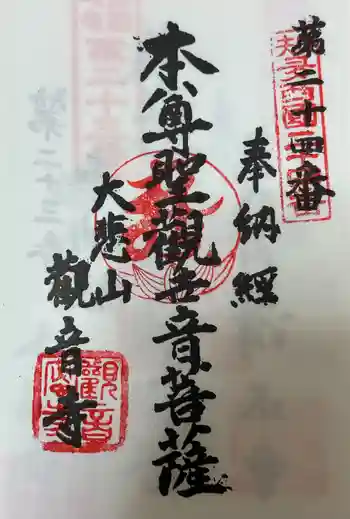 第二十四番
奉納経
本尊聖観世音菩薩
大悲山
観音寺